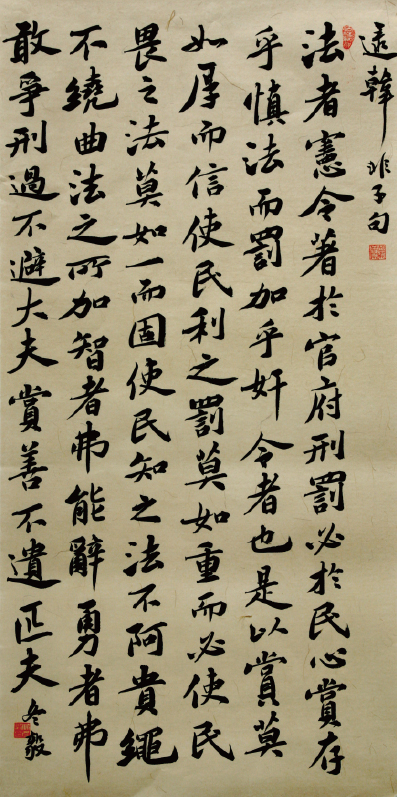 選韓非子句
法者憲令著於官府刑罰必於民心賞存
乎慎法而罰加乎奸令者也是以賞莫
如厚而信使民利之罰莫如重而必使民
畏之法莫如一而固使民知之法不阿貴繩
不繞曲法之所加智者弗能辭勇者弗
敢爭刑過不避大夫賞善不遺匹夫
冬毅